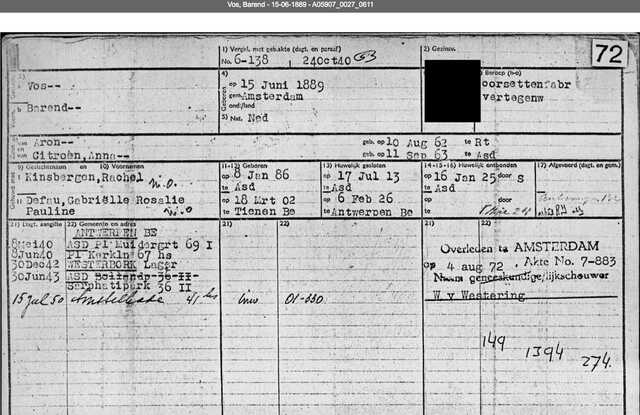 Vos, Barend - 15-06-1889 - A05907_0027_0611
72
1) Vergel. met gebakte (dagt. en paraaf)
No. 6-138 24oct40
2) Gezinsv.
Vos--
Barend--
4)
Geboren
op 15 Juni 1889
gem Amsterdam
ond/land
5) Nat. Ned
Beroep (h-o)
oorsettenfabr
vertegenw
van Aron-- geb. op 10 Aug 62 te Rt
en van Citroën, Anna-- geb. op 11 Sep 63 te Asd
9) Geslachtsnaam en 10) Voornamen
11-12) Geboren
13) Huwelijk gesloten
14-15-16) Huwelijk ontbonden
17) Afgevoerd (dagt. en gem.)
Gehuwd met
Kinsbergen, Rachel N.O.
op 8 Jan 86
te Asd
op 17 Jul 13
te Asd
op 16 Jan 25 door S
te Asd
Defau, Gabriëlle Rosalie
Pauline N.O.
op 18 Mrt 02
te Tienen Be
op 6 Feb 26
te Antwerpen Be
op door
te
21) Dagt. aangifte 22) Gemeente en adres
21)
22)
21)
22)
ANTWERPEN BE
8Mei40 ASD Pl Muidergrt 69 I
8Jun40 Pl Kerkln 67 hs
30Dec42 WESTERBORK Lager
30Jun43 ASD Bollandp 36 II
Sarphatipark 36 II
15 jul 50 Amstelkade 41 hs
inw 01-330
Overleden te AMSTERDAM
op 4 aug 72. Akte No. 7-883
Naam geneeskundige/lijkschouwer
W v Westering
149
1394
274.